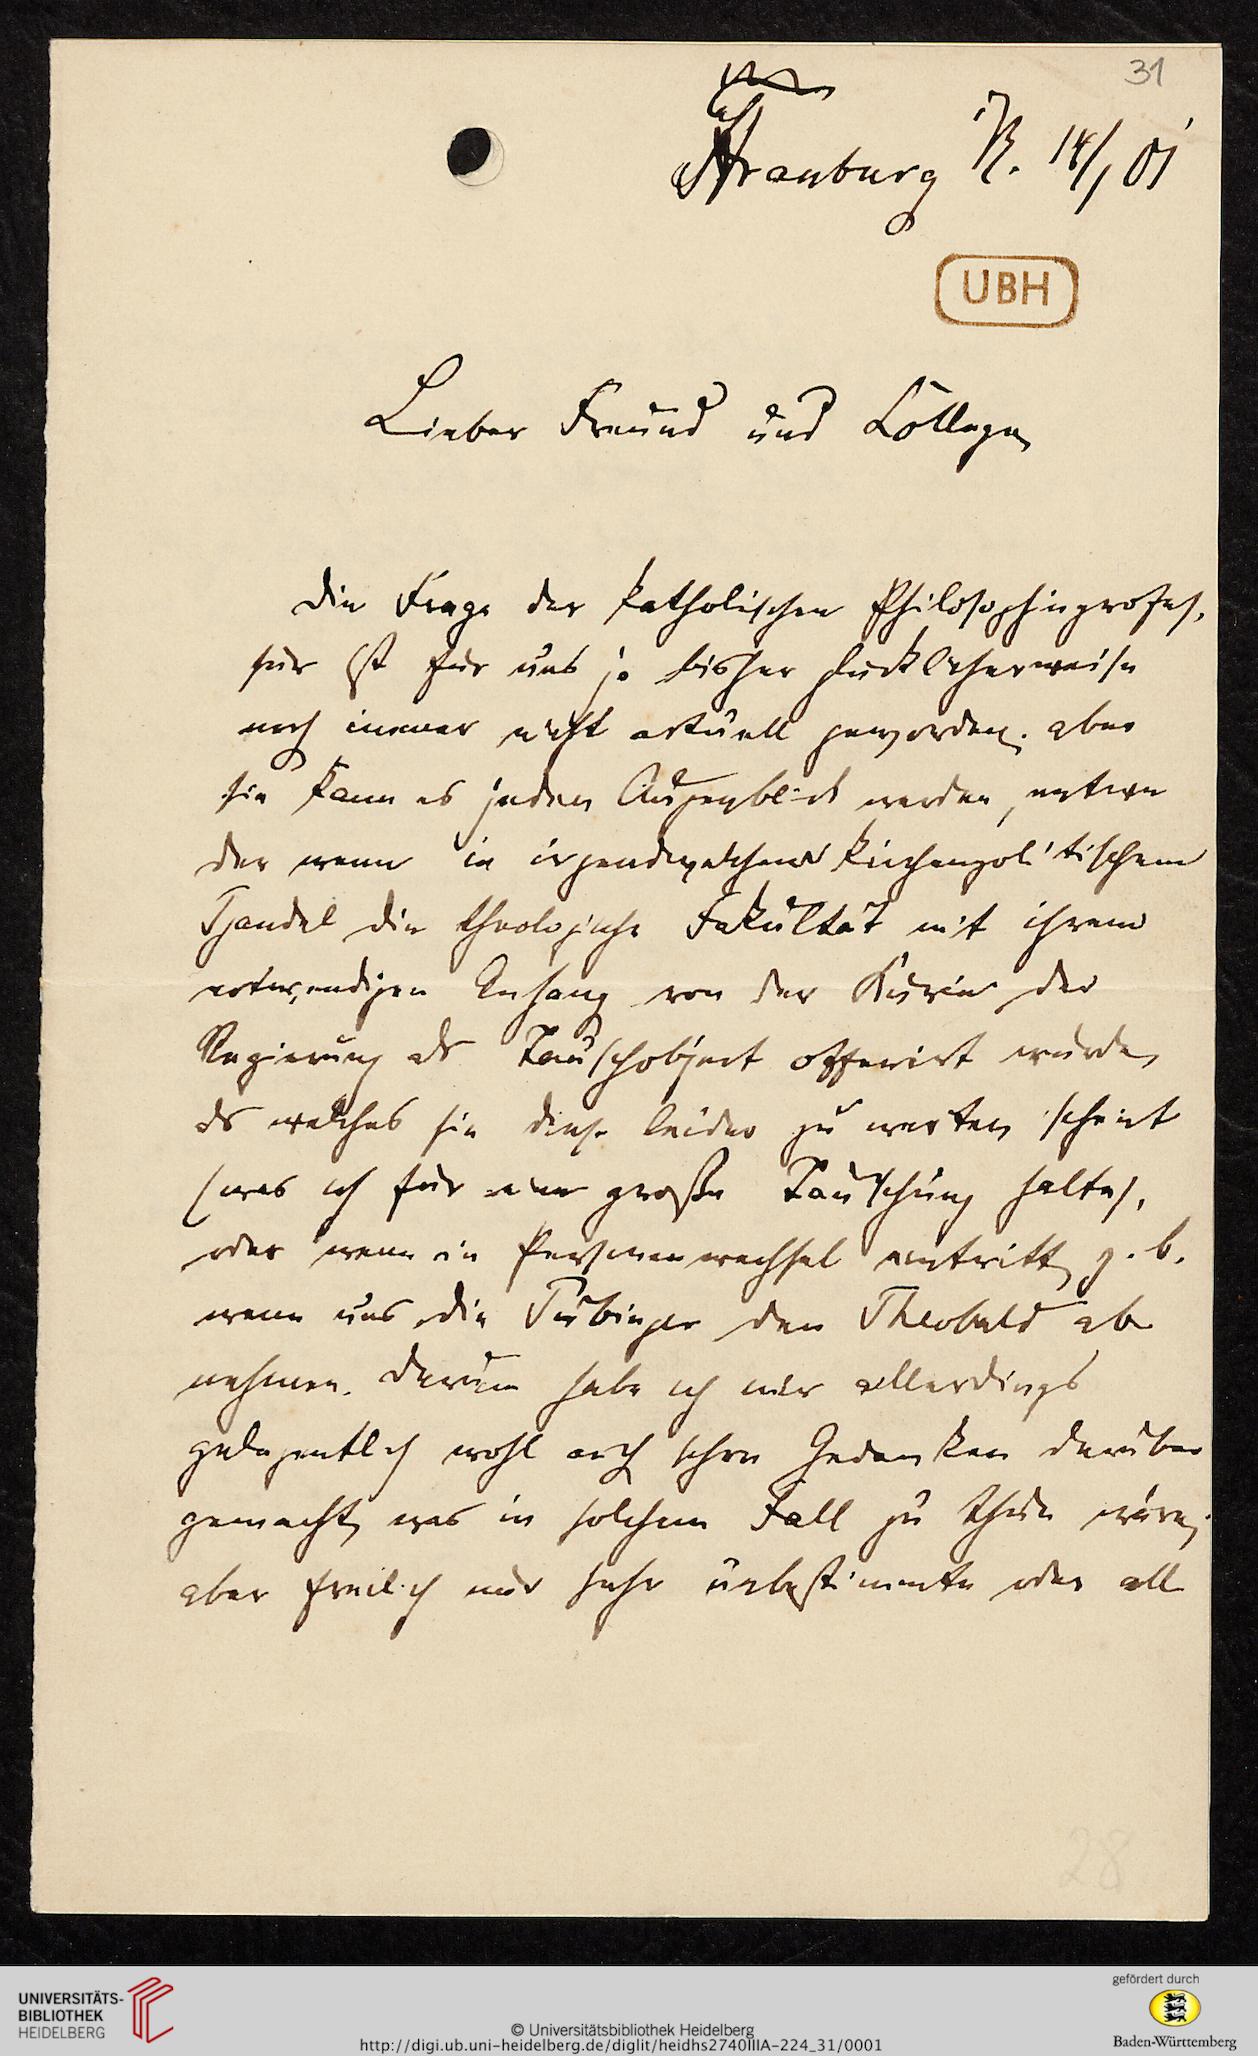 31
Straßburg R. 14/1 01
UBH
Lieber Freund und College
Die Frage der katholischen Philosophieprofes,
sur ist für uns ja bisher glücklicherweise
noch immer nicht actuell geworden. aber
sie kann es jeden Augenblick werden, entwe
der wenn in irgendwelchem kirchenpolitischem
Handel die theologische Fakultät mit ihrem
notwendigen Anhang von der Kurie der
Regierung als Tauschobject offerirt würde,
als welches sie diese leider zu werten scheint
(was ich für eine große Täuschung halte),
oder wenn ein Personenwechsel eintritt, z. b.
wenn uns die Tübinger den Theobald ab
nehmen. Darum habe ich mir allerdings
gelegentlich wohl auch schon Gedanken darüber
gemacht, was in solchem Fall zu thun wäre,
aber freilich nur sehr unbestimmte oder all
28
UNIVERSITÄTS-
BIBLIOTHEK
HEIDELBERG
© Universitätsbibliothek Heidelberg
http://digi.ub.uni-heidelberg.de/diglit/heidhs2740IIIA-224_31/0001
gefördert durch
Baden-Württemberg